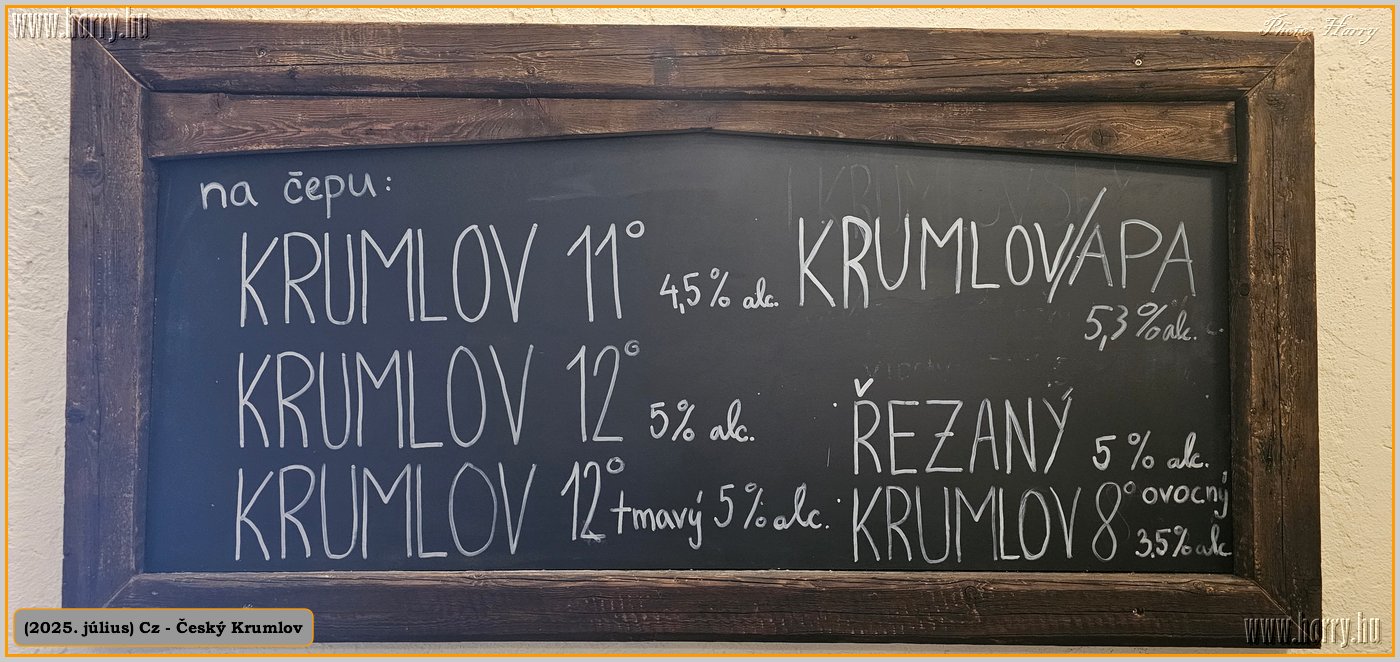 www.harry.hu
Photo Harry
na čepu:
KRUMLOV 11° 4,5% alc.
KRUMLOV 12° 5% alc.
KRUMLOV 12° tmavý 5% alc.
KRUMLOV/APA
5,3% alc.
ŘEZANÝ 5% alc.
KRUMLOV 8° ovocný
3,5% alc
(2025. július) Cz - Český Krumlov
www.harry.hu